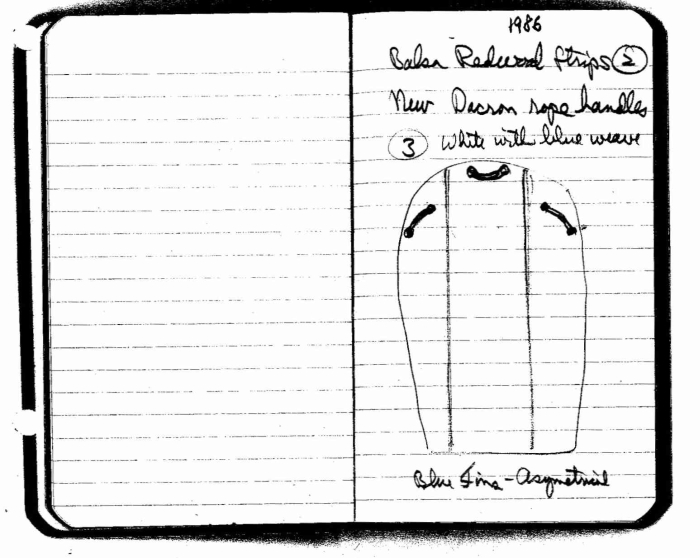 1986
Balsa Redwood Strips 2
New Dacron rope handles
3 White with blue weave
Blue Fins - Asymetrical